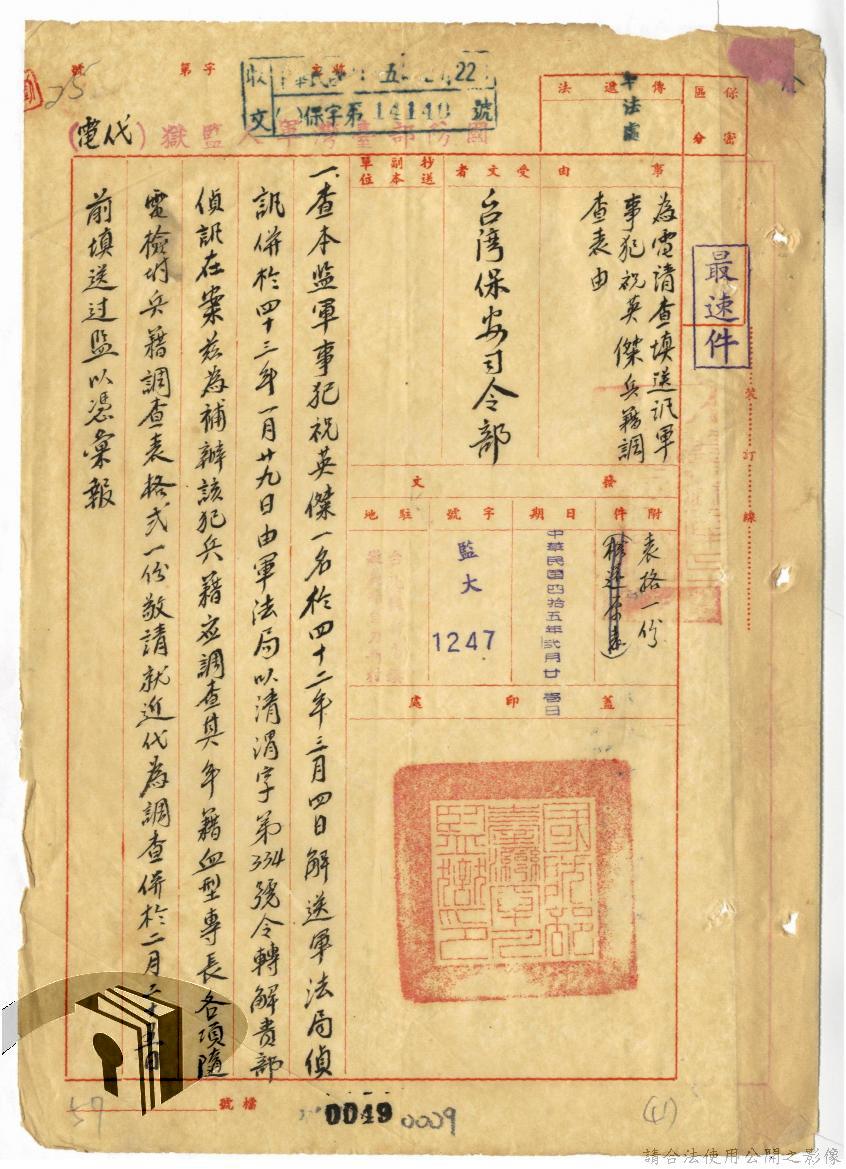 號 第 字
25
收文
22
(一)保字第14140號
國防部臺灣軍人監獄(代電)
保密區分
傳遞法
軍法處
最速件
事由
為電請查填送訊軍
事犯祝英傑兵籍調
查表由
受文者
台灣保安司令部
抄送副本單位
裝訂線
發文
附件
表格一份
日期
中華民國四拾五年貳月廿壹日
字號
監大
1247
駐地
蓋印處
國防部臺灣軍人監獄印
一、查本监軍事犯祝英傑一名於四十二年三月四日解送軍法局偵
訊併於四十三年一月廿九日由軍法局以清渭字第334號令轉解貴部
偵訊在案茲為補辦該犯兵籍应調查其年籍血型專長各項隨
電檢附兵籍調查表格式一份敬請就近代為調查併於二月二十五日
前填送过监以憑彙報
檔號
0049
0009
57
(41)
請合法使用公開之影像